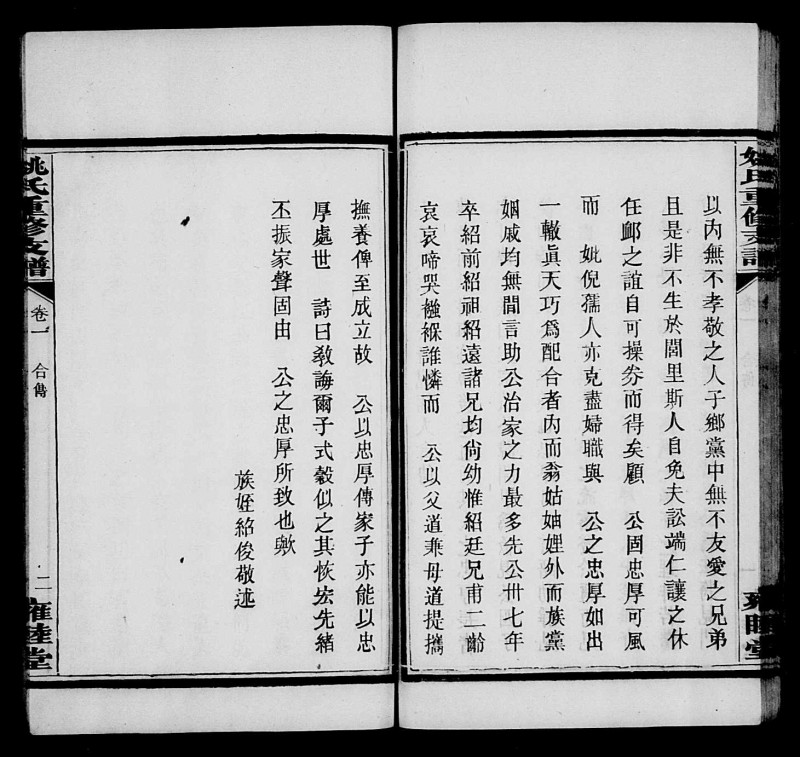 以內無不孝敬之人子鄉黨中無不友愛之兄弟
且是非不生於閭里斯人自免夫訟端仁讓之休
任卹之誼自可操券而得矣顧 公固忠厚可風
而 妣倪孺人亦克盡婦職與 公之忠厚如出
一轍眞天巧爲配合者內而翁姑妯娌外而族黨
姻戚均無間言助公治家之力最多先公卅七年
卒紹前紹祖紹遠諸兄均尙幼惟紹廷兄甫二齡
哀哀啼哭襁褓誰憐而 公以父道兼母道提攜
撫養俾至成立故 公以忠厚傳家子亦能以忠
厚處世 詩曰敎誨爾子式穀似之其恢宏先緒
丕振家聲固由 公之忠厚所致也歟
族姪紹俊敬述
姚氏重修支譜
卷一
合傳
二
雍睦堂